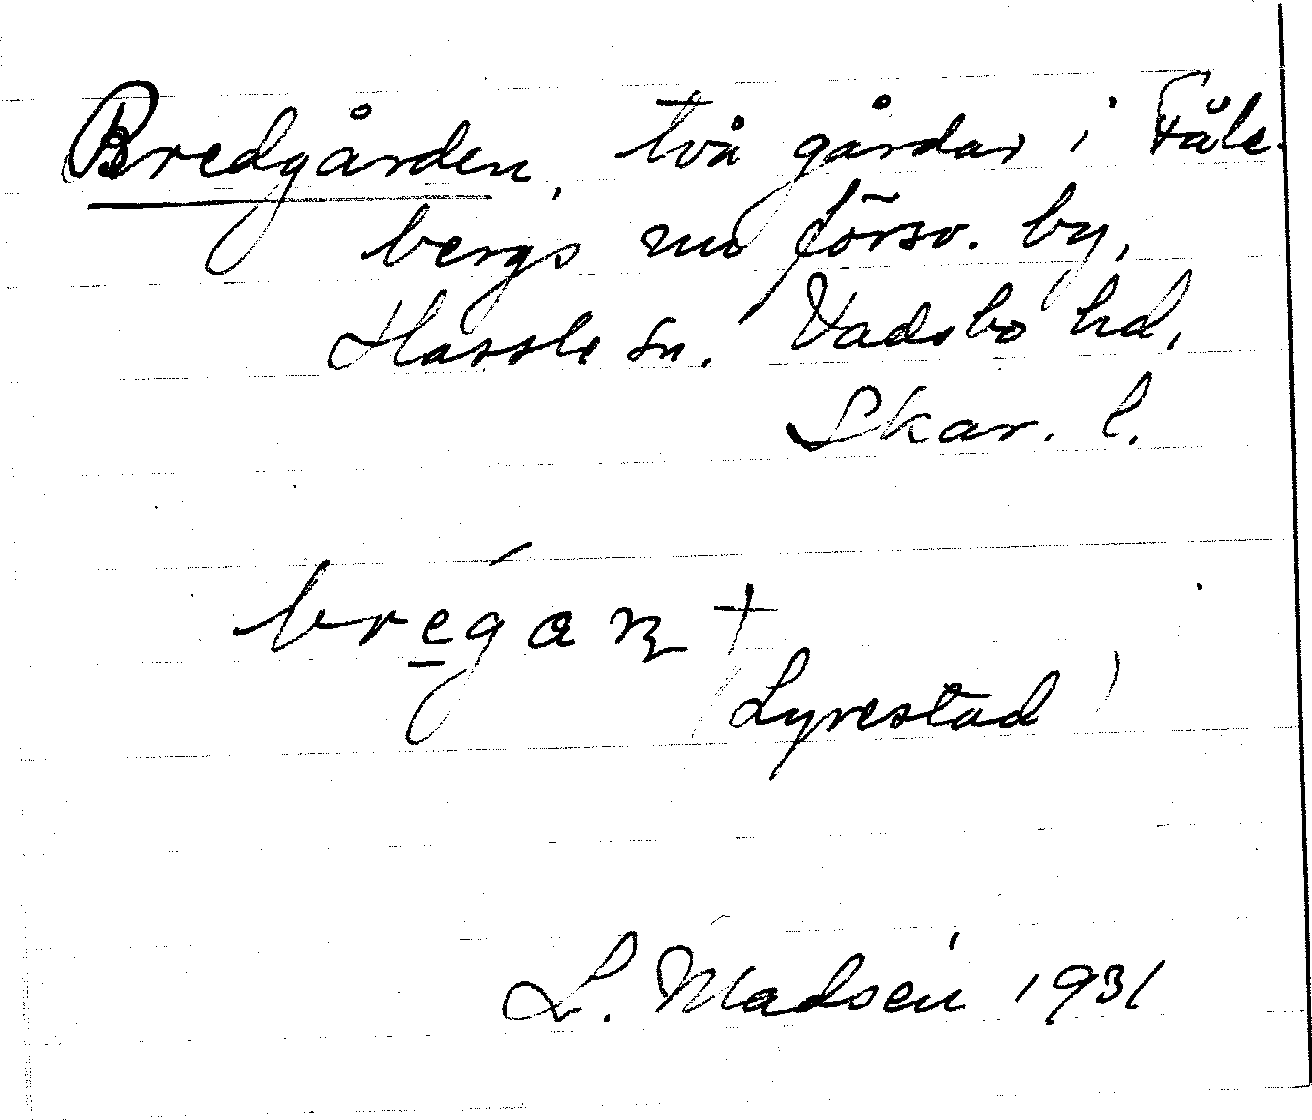 Bredgården, två gårdar i Fåle-
bergs nu försv. by,
Hassle sn. Vadsbo hd,
Skar. l.
brégan +
(Lyrestad)
L. Madsén 1931